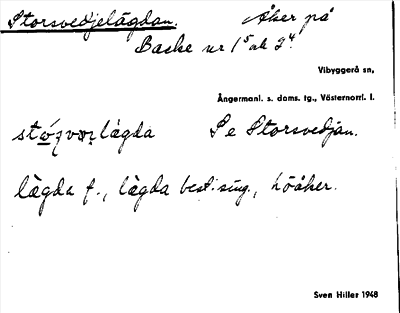 Storsvedjelägdan. Åker på
Baske nr 1⁵ ok 2⁴.
Vibyggerå sn,
Ångermanl. s. doms. tg., Västernorrl. l.
lägda Se Storsvedjan.
lägda f., lägda best. sing., höåker.
Sven Hiller 1948